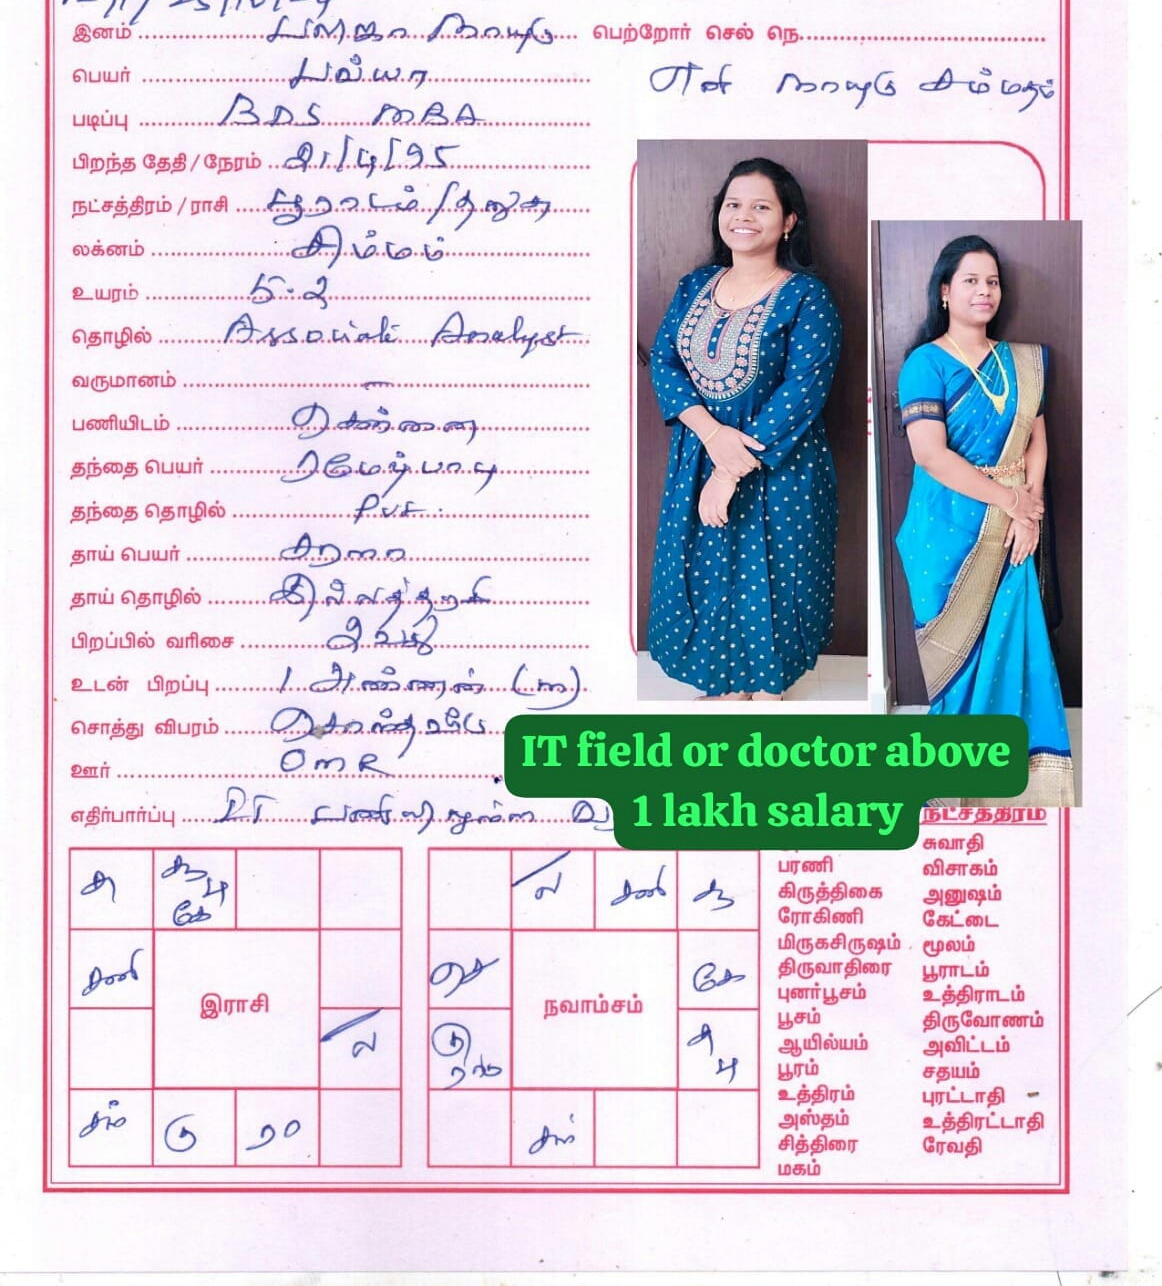 இனம் பலிஜா நாயுடு பெற்றோர் செல் நெ.
பெயர் பவ்யா
எனி நாயுடு சம்மதம்
படிப்பு BDS MBA
பிறந்த தேதி / நேரம் 21/4/95
நட்சத்திரம் / ராசி பூராடம் / தனுசு
லக்னம் சிம்மம்
உயரம் 5.2
தொழில் Associate Analyst
வருமானம் —
பணியிடம் சென்னை
தந்தை பெயர் ரமேஷ்பாபு
தந்தை தொழில் Pvt.
தாய் பெயர்
தாய் தொழில் இல்லத்தரசி
பிறப்பில் வரிசை 2
உடன் பிறப்பு 1 அண்ணன் (ம)
சொத்து விபரம் சொந்தவீடு
ஊர் OMR
எதிர்பார்ப்பு IT பணியிலுள்ள
IT field or doctor above
1 lakh salary
நட்சத்திரம்
சு சூ பு கே
சனி
ல
இராசி
சந் கு ரா
ல சனி சூ
செ கே
நவாம்சம்
கு ரா சு பு
சந்
சுவாதி
பரணி விசாகம்
கிருத்திகை அனுஷம்
ரோகிணி கேட்டை
மிருகசிருஷம் மூலம்
திருவாதிரை பூராடம்
புனர்பூசம் உத்திராடம்
பூசம் திருவோணம்
ஆயில்யம் அவிட்டம்
பூரம் சதயம்
உத்திரம் புரட்டாதி
அஸ்தம் உத்திரட்டாதி
சித்திரை ரேவதி
மகம்